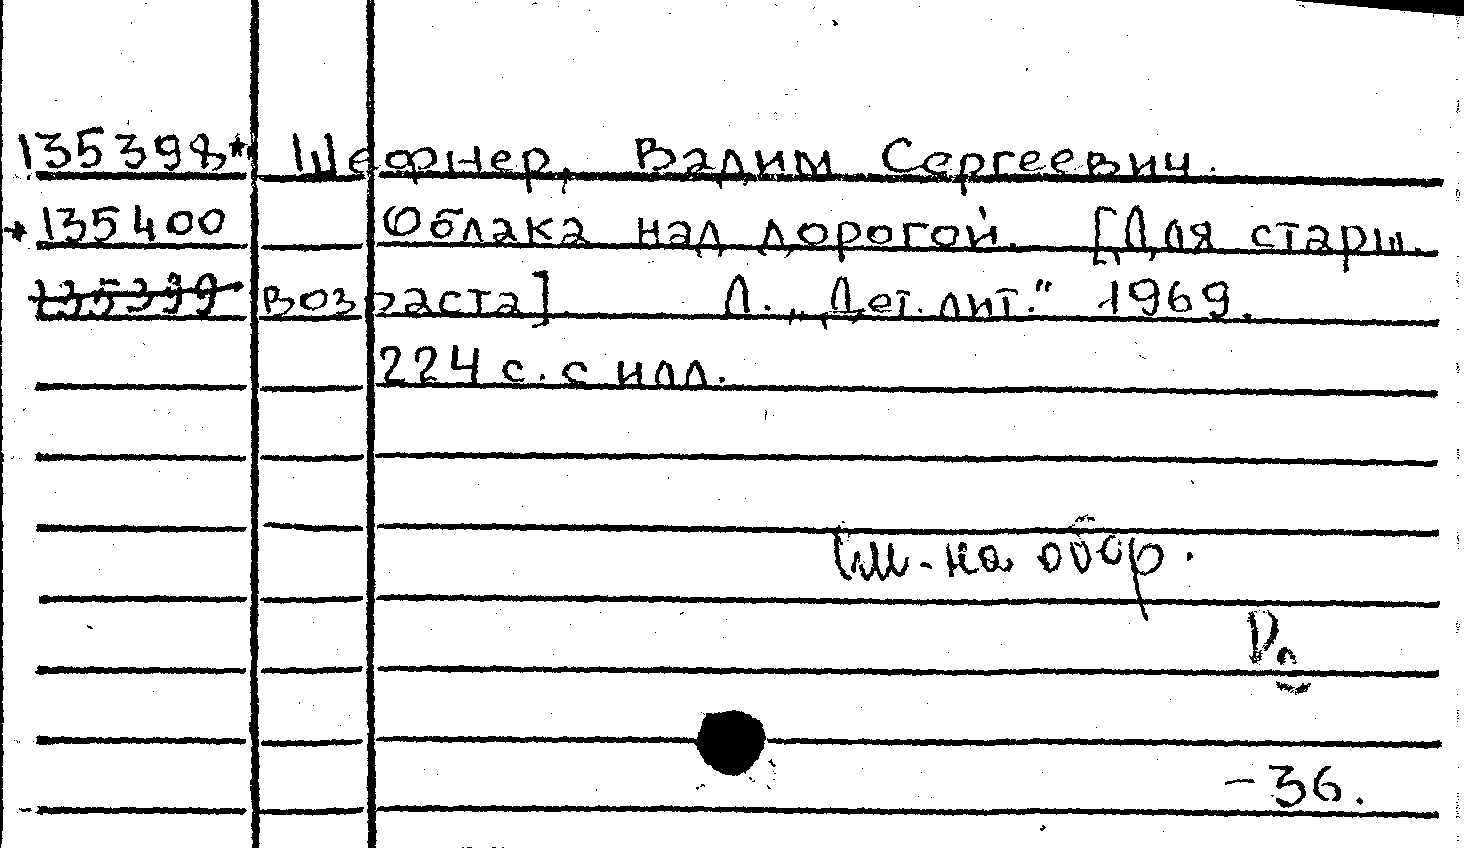 135398* Шефнер, Вадим Сергеевич.
135400 Облака над дорогой. [Для старш.
135399 возраста]. Л. „Дет. лит." 1969.
224 с. с илл.
См. на обор.
-36.